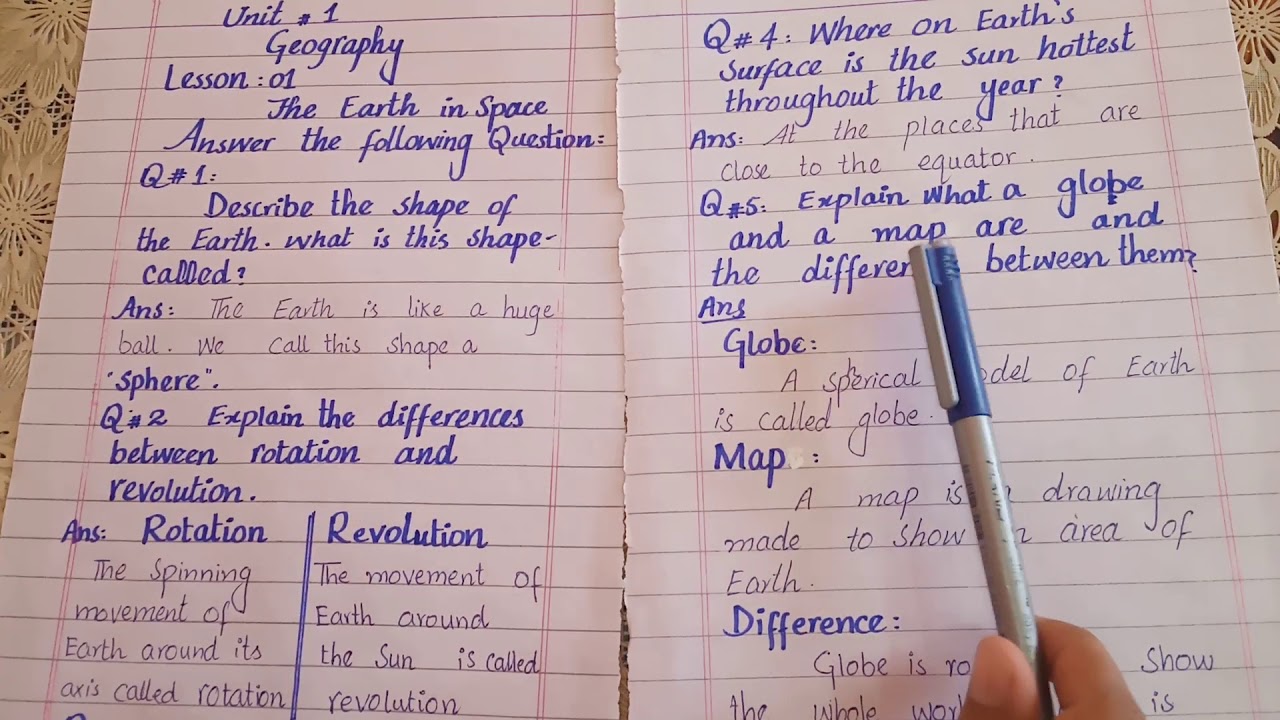 Unit # 1
Geography
Lesson : 01
The Earth in Space
Answer the following Question:
Q # 1:
Describe the shape of
the Earth. what is this shape-
called?
Ans: The Earth is like a huge
ball. We call this shape a
"sphere".
Q # 2 Explain the differences
between rotation and
revolution.
Ans: Rotation
The Spinning
movement of
Earth around its
axis called rotation
Revolution
The movement of
Earth around
the Sun is called
revolution
Q # 4: Where on Earth's
surface is the sun hottest
throughout the year?
Ans: At the places that are
close to the equator.
Q # 5: Explain what a globe
and a map are and
the between them?
Ans
Globe:
A sperical of Earth
is called globe.
Map :
A map is drawing
made to show area of
Earth.
Difference:
Globe is Show
the whole is